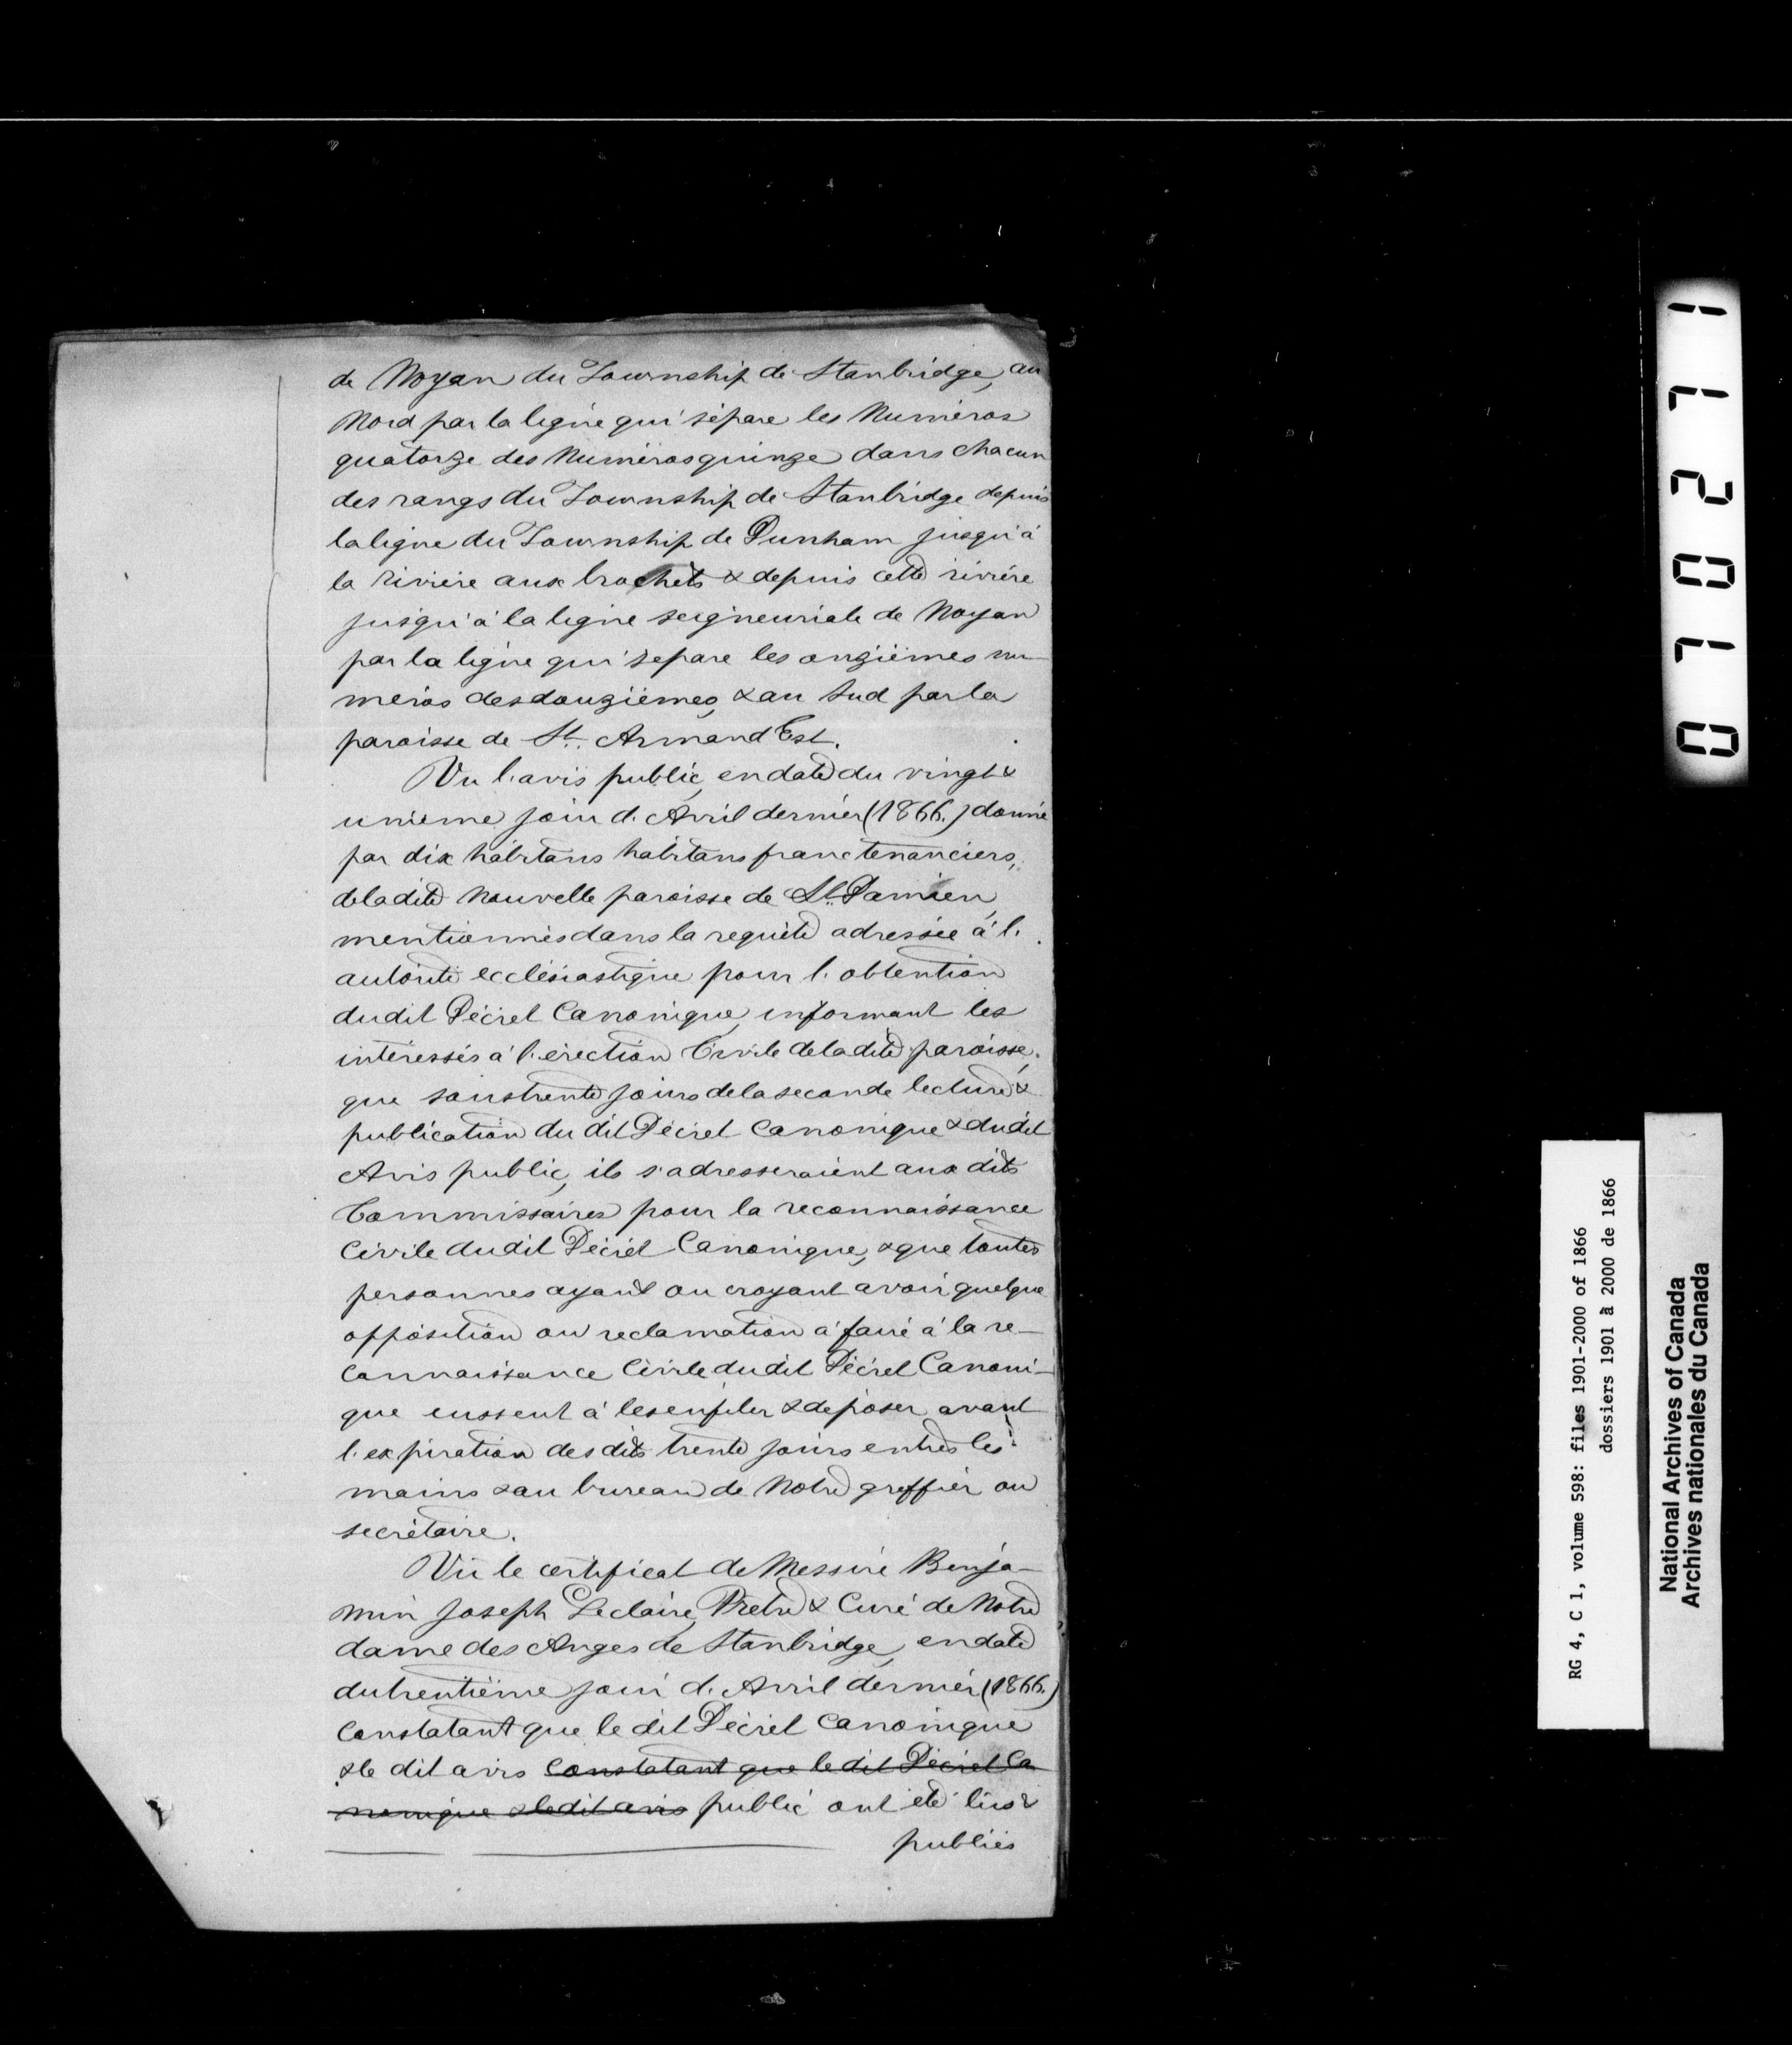 de Noyan du Township de Stanbridge, au
Nord par la ligne qui sépare les Numéros
quatorze des Numéros quinze dans chacun
des rangs du Township de Stanbridge depuis
la ligne du Township de Dunham jusqu'à
la rivière aux brochets & depuis cette rivière
jusqu'à la ligne seigneuriale de Noyan
par la ligne qui sépare les onzièmes nu-
méros des douzièmes, & au Sud par la
paroisse de St. Armand Est.
Vu l'avis public, en date du vingt &
unième jour d'Avril dernier (1866.) donné
par dix habitans habitans franc tenanciers,
de la dite Nouvelle paroisse de St. Damien,
mentionnés dans la requête adressée à l'
autorité ecclésiastique pour l'obtention
du dit Décret Canonique, informant les
intéressés à l'érection Civile de la dite paroisse,
que sous trente jours de la seconde lecture &
publication du dit Décret Canonique & du dit
Avis public, ils s'adresseraient aux dits
Commissaires pour la reconnaissance
Civile du dit Décret Canonique, & que toutes
personnes ayant ou croyant avoir quelque
opposition ou reclamation à faire à la re-
connaissance Civile du dit Décret Canoni-
que eussent à les enfiler & déposer avant
l'expiration des dits trente jours entres les
mains & au bureau de Notre greffier ou
secrétaire.
Vu le certificat de Messire Benja-
min Joseph Leclaire, Prêtre & Curé de Notre
dame des Anges de Stanbridge, en date
du trentième jour d'Avril dernier (1866.)
Constatant que le dit Décret Canonique
& le dit avis Constatant que le dit Décret Ca
nonique & le dit avis public ont été lus &
publiés
071021771
RG 4, C 1, volume 598: files 1901-2000 of 1866
dossiers 1901 à 2000 de 1866
National Archives of Canada
Archives nationales du Canada